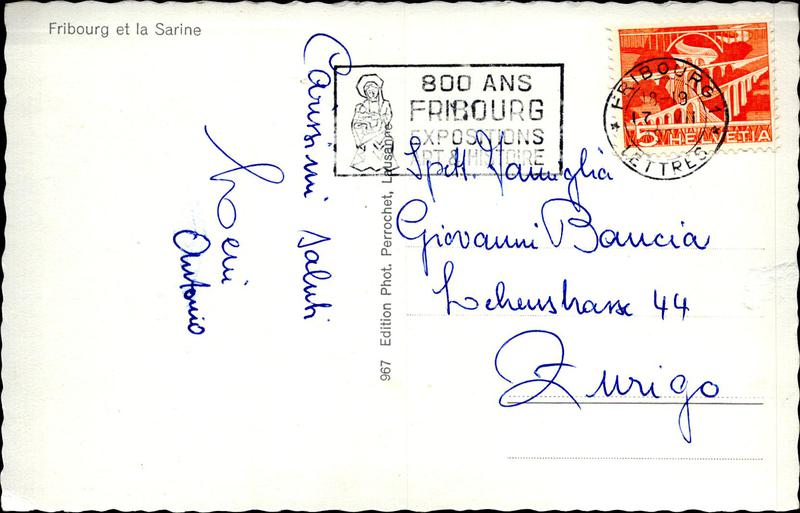 Fribourg et la Sarine
Carissimi saluti
Antonio
967 Edition Phot. Perrochet, Lausanne
800 ANS
FRIBOURG
EXPOSITIONS
ART & HISTOIRE
FRIBOURG 1
LETTRES
18-19
5
HELVETIA
Spett. Famiglia
Giovanni Bancia
44
Zurigo